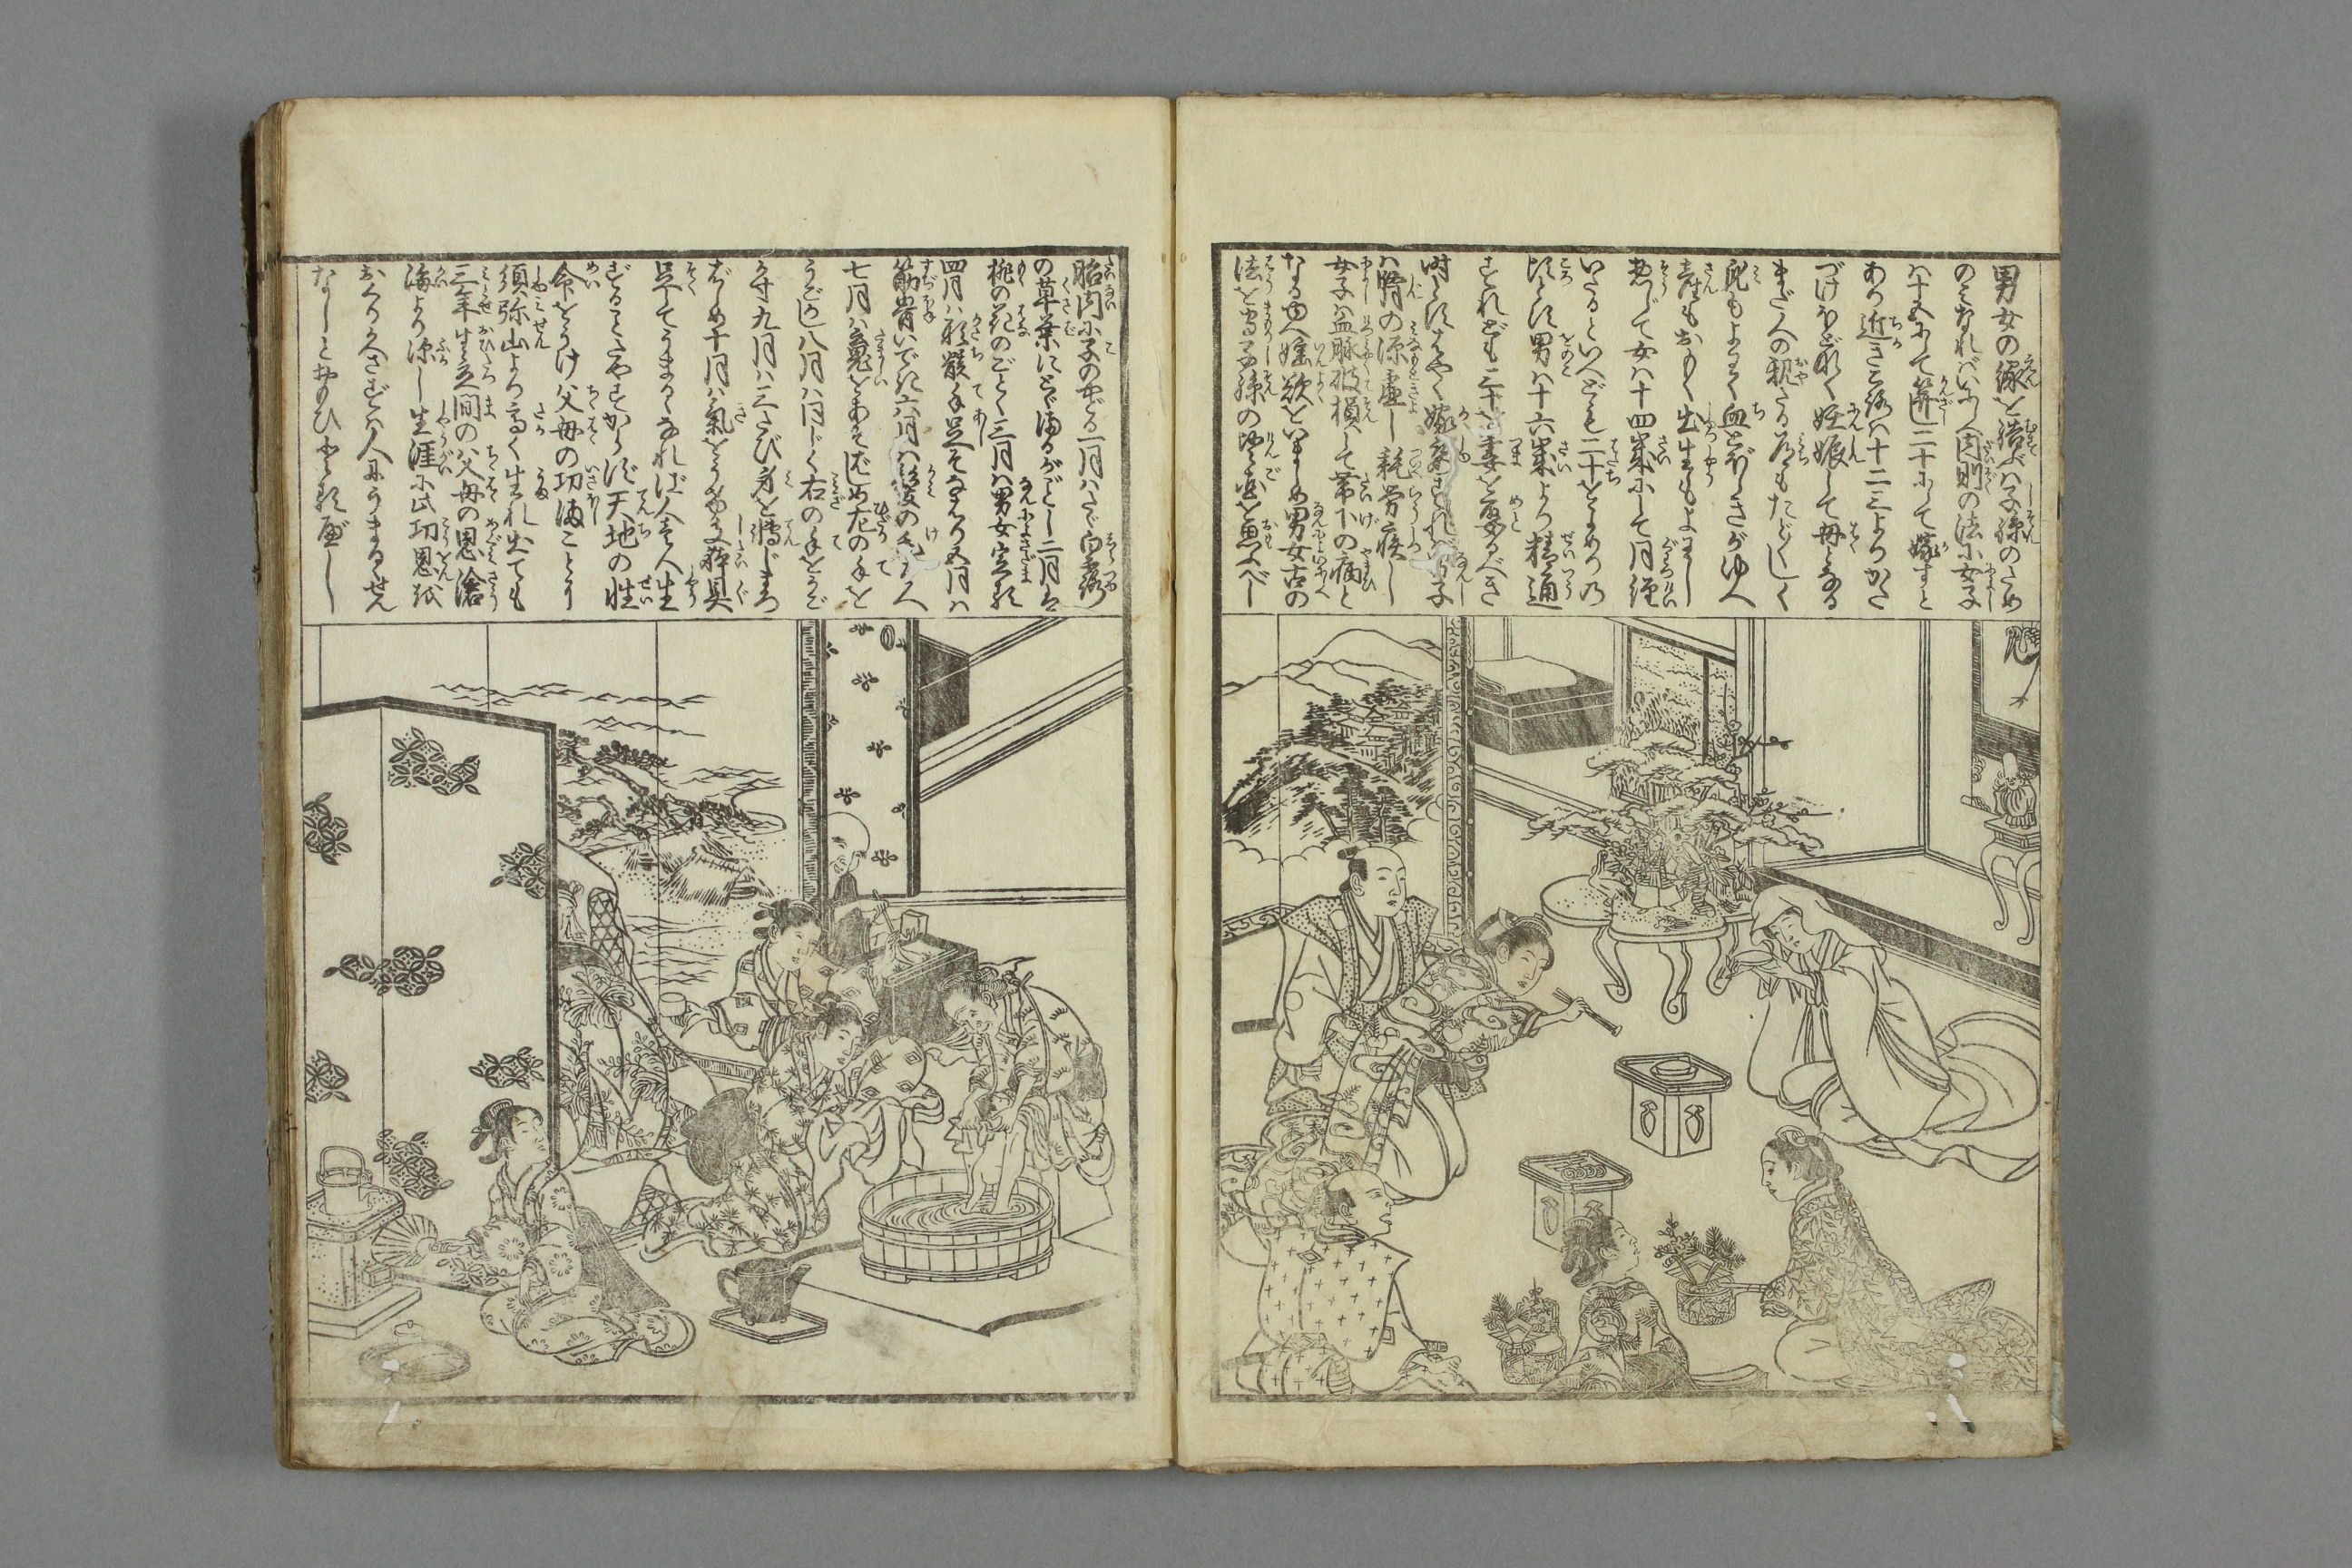 男女の縁を結ぶハ子孫のため
のミなれバいにしへ内則の法に女子
ハ十五にて笄し二十にて嫁すと
あり近きころハ十二三よりかた
づけほどなく妊娠して母となる
まだ人の親たる道もたどしく
身もよわく血とぼしきがゆへ
産もおもく出生もよわし
惣じて女ハ十四歳にして月経
いたるといへども二十をよめりの
比とす男ハ十六歳より精通
すれども三十を妻を娶るべき
時とすはやく嫁娶すれバ男子
ハ腎の源虚し耗労疾し
女子ハ血脈破損して帯下の病と
なるゆへ婬欲をいましめ男女古の
法を守子孫の
胎内に子のやどる一月ハたゞ白露
の草葉にとゞまるがごとし二月は
桃の花のごとく三月ハ男女定り
四月ハ形㒵手足そなハり五月ハ
筋骨いでき六月ハ髪の毛
七月ハ魂をあそばしめ左の手を
うごかし八月ハ同じく右の手をうご
かす九月ハ三たび身を転じまろ
ばしめ十月ハ気をうけ支体具
足してうまるゝなれば人と人生
ずることたやすからず天地の性
命をうけ父母の功満ことハ
須弥山より高く生れ出ても
三年生立間の父母の恩滄
海より深し生涯に此功恩を
おくり人さずハ人にうまるゝせん
なしとおもひ